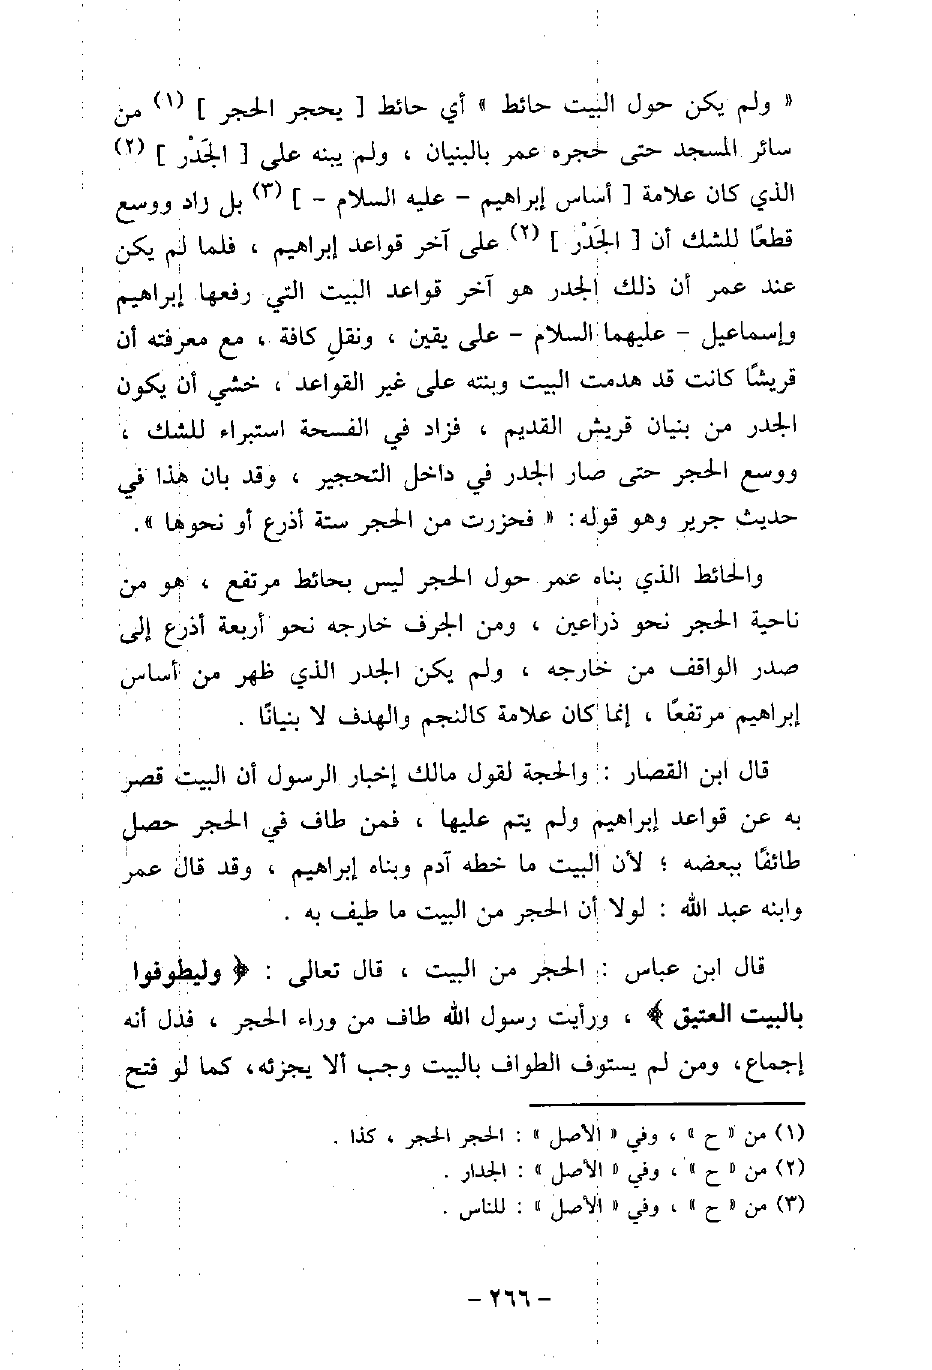 « ولم يكن حول البيت حائط » أي حائط [ يحجر الحجر ] (١) من
سائر المسجد حتى حجره عمر بالبنيان ، ولم يبنه على [ الجَدْر ] (٢)
الذي كان علامة [ أساس إبراهيم – عليه السلام – ] (٣) بل زاد ووسع
قطعًا للشك أن [ الجَدْر ] (٢) على آخر قواعد إبراهيم ، فلما لم يكن
عند عمر أن ذلك الجدر هو آخر قواعد البيت التي رفعها إبراهيم
وإسماعيل – عليهما السلام – على يقين ، ونقلِ كافة ، مع معرفته أن
قريشًا كانت قد هدمت البيت وبنته على غير القواعد ، خشي أن يكون
الجدر من بنيان قريش القديم ، فزاد في الفسحة استبراء للشك ،
ووسع الحجر حتى صار الجدر في داخل التحجير ، وقد بان هذا في
حديث جرير وهو قوله: « فحزرت من الحجر ستة أذرع أو نحوها ».
والحائط الذي بناه عمر حول الحجر ليس بحائط مرتفع ، هو من
ناحية الحجر نحو ذراعين ، ومن الجرف خارجه نحو أربعة أذرع إلى
صدر الواقف من خارجه ، ولم يكن الجدر الذي ظهر من أساس
إبراهيم مرتفعًا ، إنما كان علامة كالنجم والهدف لا بنيانًا .
قال ابن القصار : والحجة لقول مالك إخبار الرسول أن البيت قصر
به عن قواعد إبراهيم ولم يتم عليها ، فمن طاف في الحجر حصل
طائفًا ببعضه ؛ لأن البيت ما خطه آدم وبناه إبراهيم ، وقد قال عمر
وابنه عبد الله : لولا أن الحجر من البيت ما طيف به .
قال ابن عباس : الحجر من البيت ، قال تعالى : ﴿ وليطوفوا
بالبيت العتيق ﴾ ، ورأيت رسول الله طاف من وراء الحجر ، فدل أنه
إجماع، ومن لم يستوف الطواف بالبيت وجب ألا يجزئه، كما لو فتح
(١) من « ح » ، وفي « الأصل » : الحجر الحجر ، كذا .
(٢) من « ح » ، وفي « الأصل » : الجدار .
(٣) من « ح » ، وفي « الأصل » : للناس .
– ٢٦٦ –